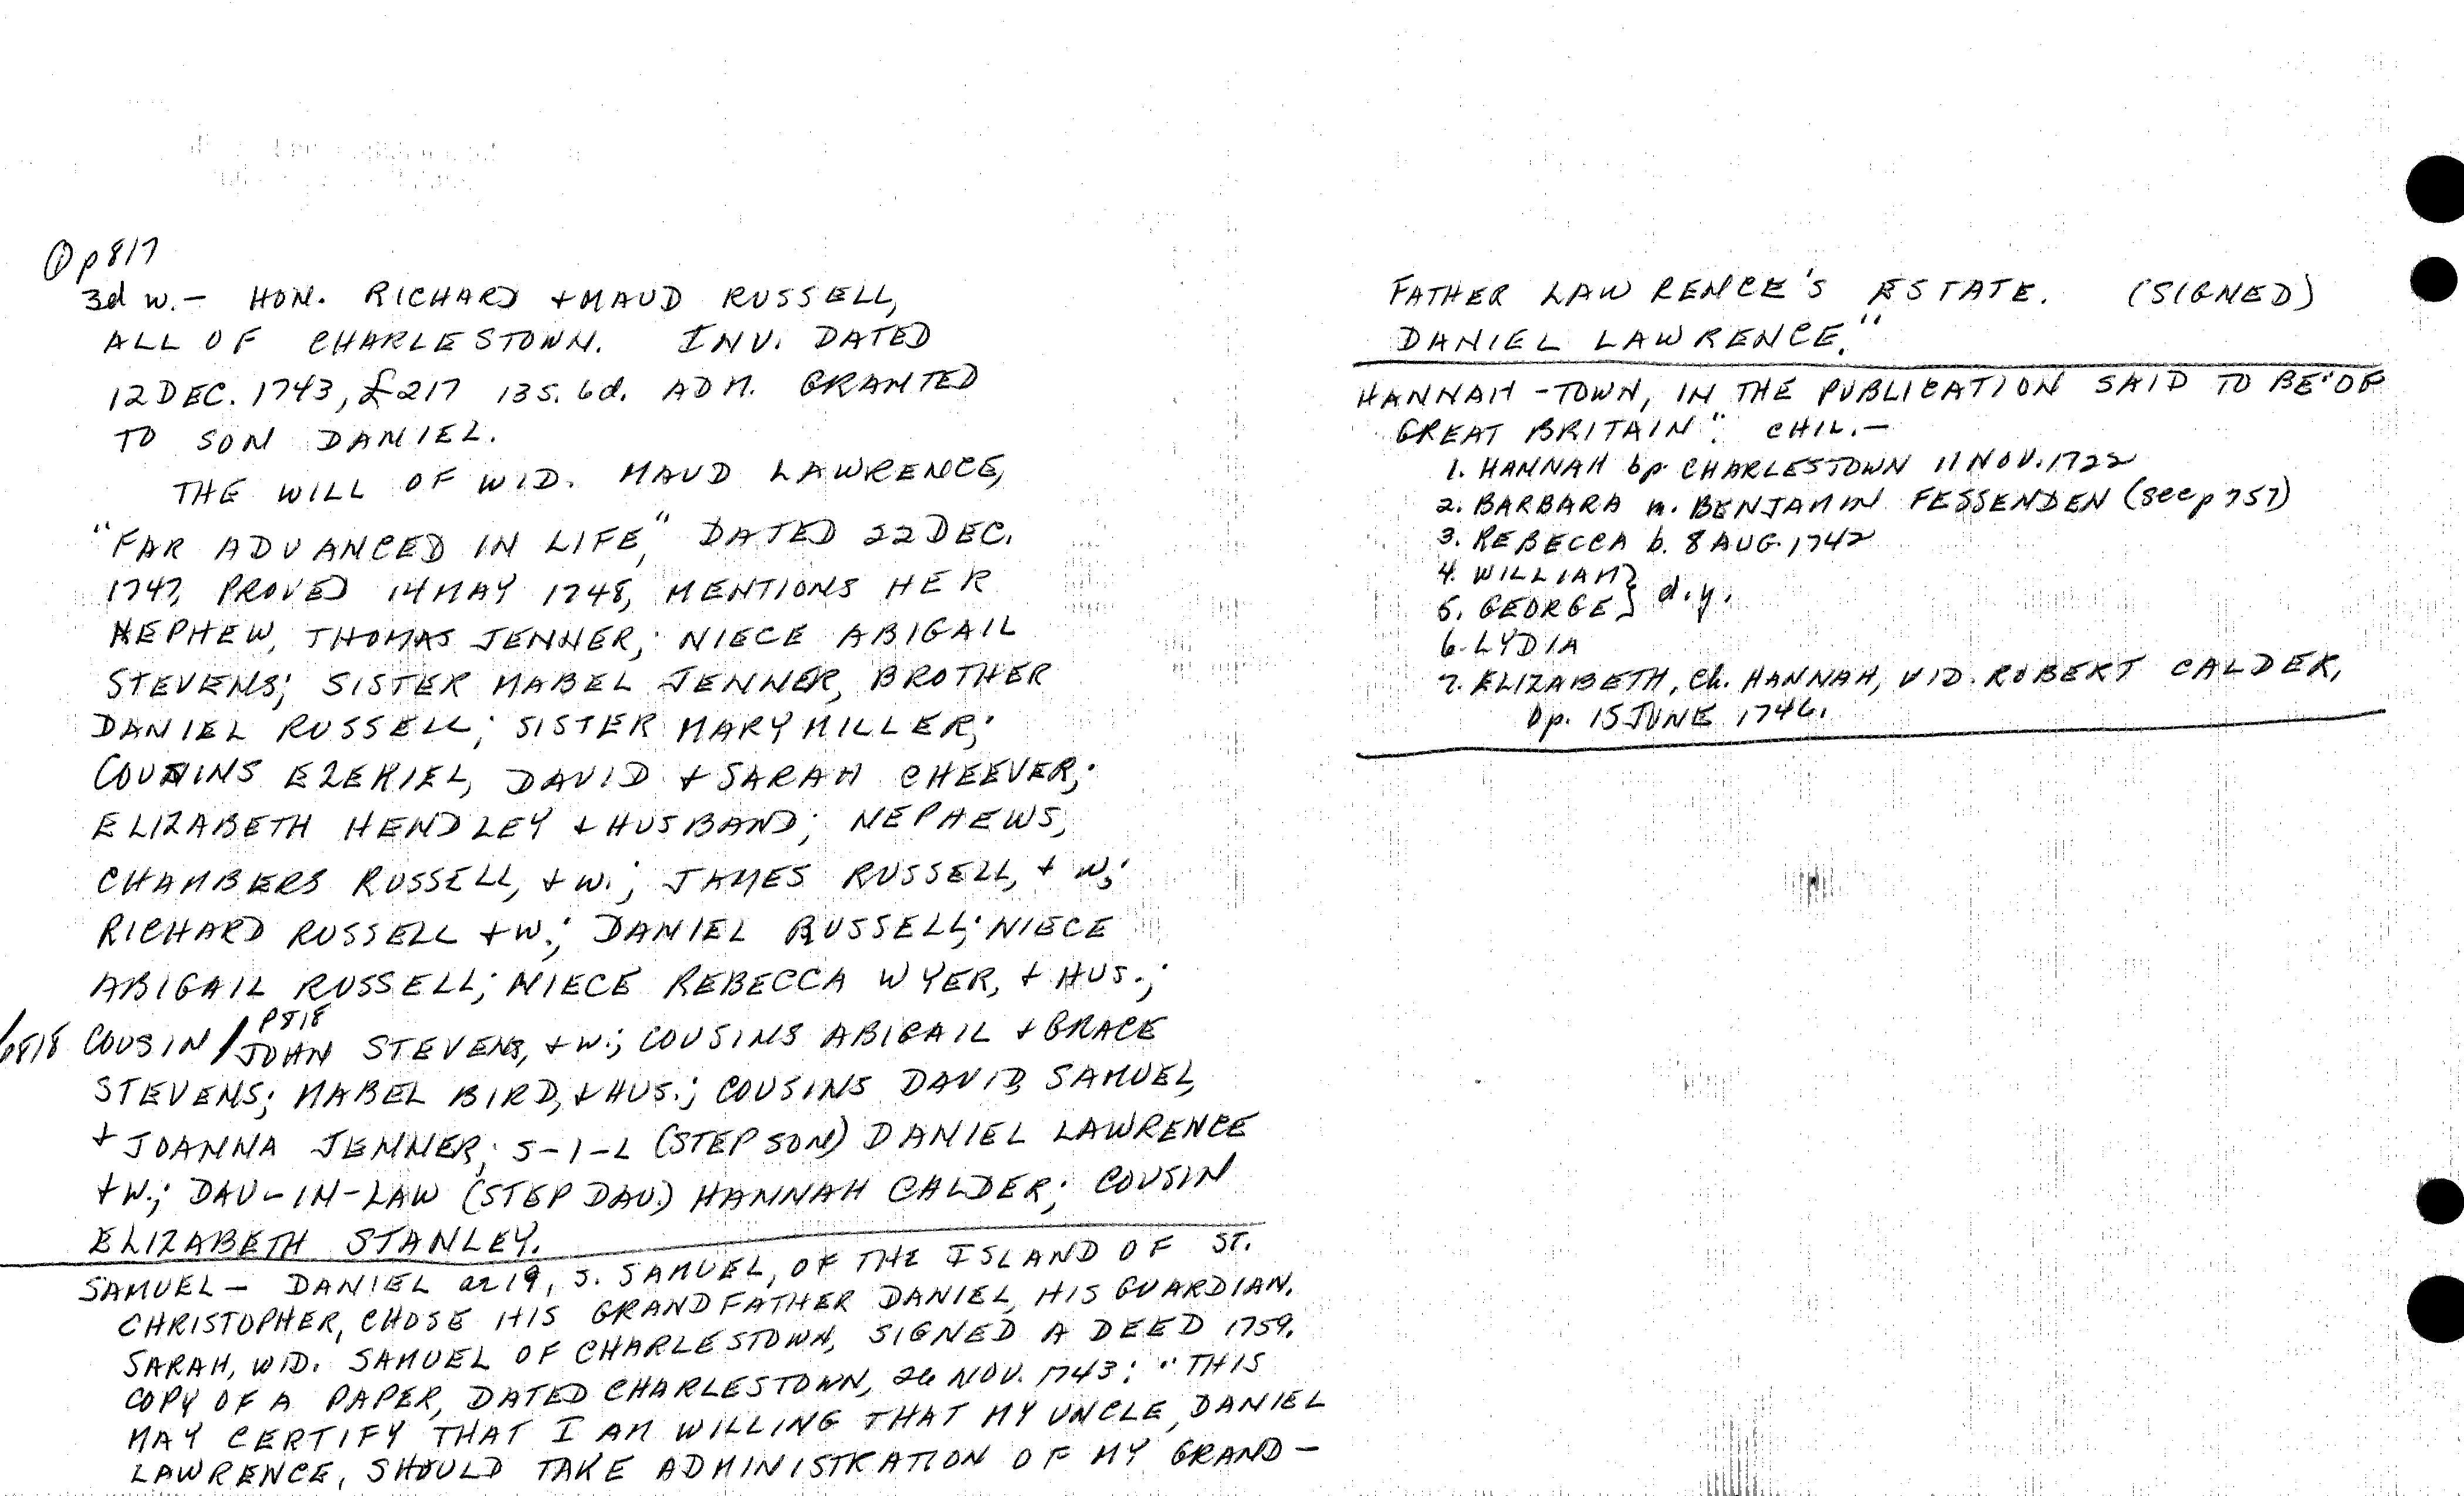 ① p817
3d w.– HON. RICHARD + MAUD RUSSELL,
ALL OF CHARLESTOWN. INV. DATED
12 DEC. 1743, £217 13s. 6d. ADM. GRANTED
TO SON DANIEL.
THE WILL OF WID. MAUD LAWRENCE,
"FAR ADVANCED IN LIFE," DATED 22 DEC.
1747, PROVED 14 MAY 1748, MENTIONS HER
NEPHEW, THOMAS JENNER; NIECE ABIGAIL
STEVENS; SISTER MABEL JENNER, BROTHER
DANIEL RUSSELL; SISTER MARY MILLER;
COUSINS EZEKIEL, DAVID + SARAH CHEEVER;
ELIZABETH HENDLEY + HUSBAND; NEPHEWS,
CHAMBERS RUSSELL, + W.; JAMES RUSSELL, + W.;
RICHARD RUSSELL + W.; DANIEL RUSSELL; NIECE
ABIGAIL RUSSELL; NIECE REBECCA WYER, + HUS.;
p818
/p818 COUSIN / JOHN STEVENS, + W.; COUSINS ABIGAIL + GRACE
STEVENS; MABEL BIRD, + HUS.; COUSINS DAVID, SAMUEL,
+ JOANNA JENNER; S-I-L (STEP SON) DANIEL LAWRENCE
+ W.; DAU-IN-LAW (STEP DAU.) HANNAH CALDER; COUSIN
ELIZABETH STANLEY.
SAMUEL – DANIEL ae 19, S. SAMUEL, OF THE ISLAND OF ST.
CHRISTOPHER, CHOSE HIS GRANDFATHER DANIEL, HIS GUARDIAN.
SARAH, WID. SAMUEL OF CHARLESTOWN, SIGNED A DEED 1759.
COPY OF A PAPER, DATED CHARLESTOWN, 26 NOV. 1743: "THIS
MAY CERTIFY THAT I AM WILLING THAT MY UNCLE, DANIEL
LAWRENCE, SHOULD TAKE ADMINISTRATION OF MY GRAND–
FATHER LAWRENCE'S ESTATE. (SIGNED)
DANIEL LAWRENCE."
HANNAH – TOWN, IN THE PUBLICATION SAID TO BE "OF
GREAT BRITAIN". CHIL.–
1. HANNAH bp CHARLESTOWN 11 NOV. 1722
2. BARBARA m. BENJAMIN FESSENDEN (see p 757)
3. REBECCA b. 8 AUG. 1742
4. WILLIAM }
5. GEORGE } d.y.
6. LYDIA
7. ELIZABETH, Ch. HANNAH, WID. ROBERT CALDER,
bp. 15 JUNE 1746.